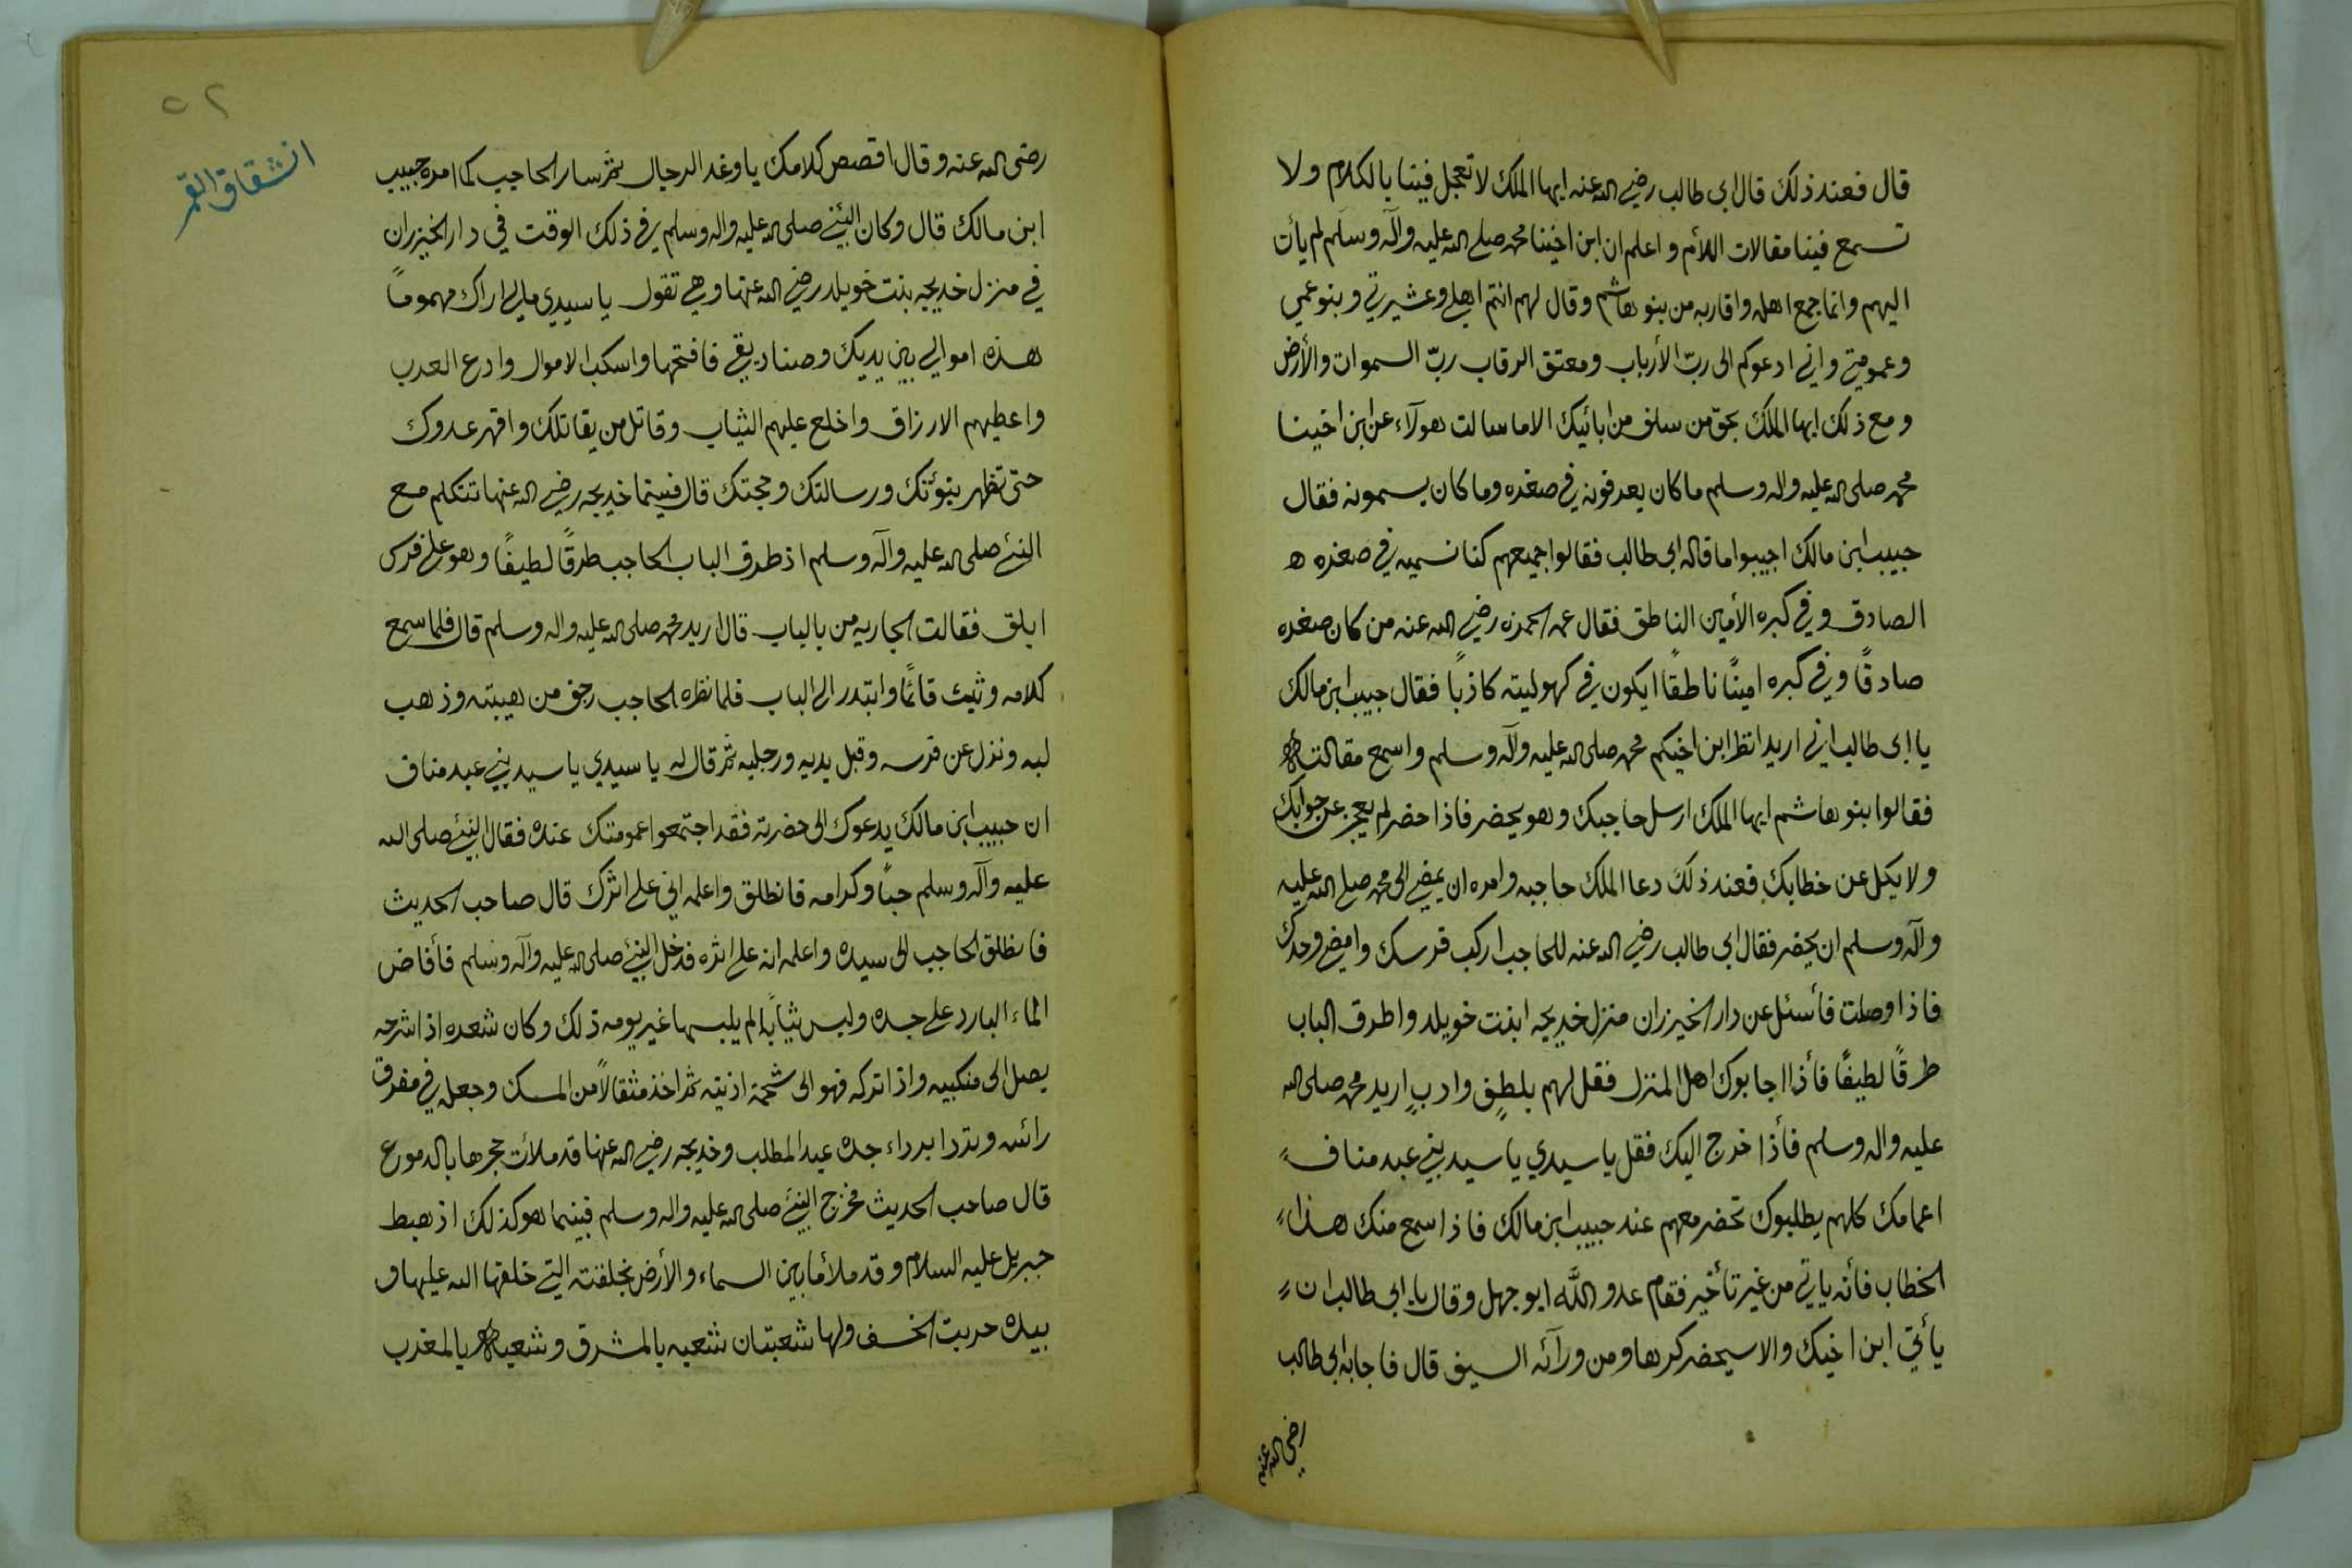 قال فعند ذلك قال ابي طالب رضي الله عنه ايها الملك لا تعجل فينا بالكلام ولا
تسمع فينا مقالات اللأم و اعلم ان ابن اخينا محمد صلى الله عليه وآله وسلم لم يأت
اليهم وانما جمع اهله واقاربه من بنو هاشم وقال لهم انتم اهلي وعشيرتي وبنو عمي
وعمومتي واني ادعوكم الى ربّ الأرباب ومعتق الرقاب ربّ السموات والأرض
ومع ذلك ايها الملك بحق من سلف من ابائيك الا ما سالت هولآء عن ابن اخينا
محمد صلى الله عليه واله وسلم ما كان يعرفونه في صغره وما كان يسمونه فقال
حبيب ابن مالك اجيبوا ما قاله ابي طالب فقالوا جميعهم كنا نسميه في صغره ه
الصادق وفي كبره الأمين الناطق فقال عمه الحمزه رضي الله عنه من كان صغره
صادقًا وفي كبره امينًا ناطقًا ايكون في كهوليته كاذبًا فقال حبيب ابن مالك
يا ابي طالب اني اريد انظر ابن اخيكم محمد صلى الله عليه وآله وسلم واسمع مقالته
فقالوا بنو هاشم ايها الملك ارسل حاجبك وهو يحضر فاذا حضر لم يعجز عن جوابك
ولا يكل عن خطابك فعند ذلك دعا الملك حاجبه وامره ان يمضي الى محمد صلى الله عليه
وآله وسلم ان يحضر فقال ابي طالب رضي الله عنه للحاجب اركب فرسك وامض وحدك
فاذا وصلت فأسئل عن دار الخيزران منزل خديجه ابنت خويلد واطرق الباب
طرقًا لطيفًا فأذا اجابوك اهل المنزل فقل لهم بلطفٍ وادبٍ اريد محمد صلى الله
عليه واله وسلم فأذا خرج اليك فقل يا سيدي يا سيد بني عبد مناف
اعمامك كلهم يطلبوك تحضر معهم عند حبيب ابن مالك فاذا سمع منك هذا
الخطاب فأنه يأتي من غير تأخير فقام عدو اللّه ابو جهل وقال يا ابي طالب ان
يأتي ابن اخيك والا سيحضر كرها ومن ورآئه السيف قال فاجابه ابي طالب
رضي الله عنه
٥٢
انشقاق القمر
رضى الله عنه وقال اقصص كلامك يا وغد الرجال ثم سار الحاجب كما امره حبيب
ابن مالك قال وكان النبئي صلى الله عليه واله وسلم في ذلك الوقت في دار الخيزران
في منزل خديجه بنت خويلد رضي الله عنها وهي تقول يا سيدي مالي اراك مهمومًا
هذه اموالي بين يديك وصناديقي فافتحها واسكب الاموال وادع العرب
واعطيهم الارزاق واخلع عليهم الثياب وقاتل من يقاتلك واقهر عدوك
حتى تظهر بنبوّتك ورسالتك وحجتك قال فبينما خديجه رضي الله عنها تتكلم مع
النبئي صلى الله عليه وآله وسلم اذ طرق الباب الحاجب طرقًا لطيفًا وهو على فرس
ابلق فقالت الجاريه من بالباب قال اريد محمد صلى الله عليه واله وسلم قال فلما سمع
كلامه وثب قائمًا وابتدر الى الباب فلما نظره الحاجب رجف من هيبته وذهب
لبه ونزل عن فرسه وقبل يديه ورجليه ثم قال له يا سيدي يا سيد بني عبد مناف
ان حبيب ابن مالك يدعوك الى حضرته فقد اجتمعوا عمومتك عنده فقال النبئي صلى الله
عليه وآله وسلم حبًا وكرامه فانطلق واعلمه اني على اثرك قال صاحب الحديث
فانطلق الحاجب الى سيده واعلمه انه على اثره فدخل النبئي صلى الله عليه وآله وسلم فأفاض
الماء البارد على جسده ولبس ثيابًا لم يلبسها غير يومه ذلك وكان شعره اذا شرحه
يصل الى منكبيه واذا تركه فهو الى شحمة اذنيه ثم اخذ مثقالاً من المسك وجعله في مفرق
رائسه وتردا برداء جده عبد المطلب وخديجه رضي الله عنها قد ملأت حجرها بالدموع
قال صاحب الحديث فخرج النبئي صلى الله عليه واله وسلم فبينما هو كذلك اذ هبط
جبريل عليه السلام وقد ملأ ما بين السماء والأرض بخلقته التي خلقها الله عليها و
بيده حربت الخسف ولها شعبتان شعبه بالمشرق وشعبه بالمغرب